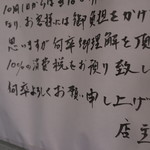 10月1日から
なり、お客様には御負担をかけ
思いますが何卒御理解を頂
10%の消費税をお預り致し
何卒よろしくお願い申し上げ
店主